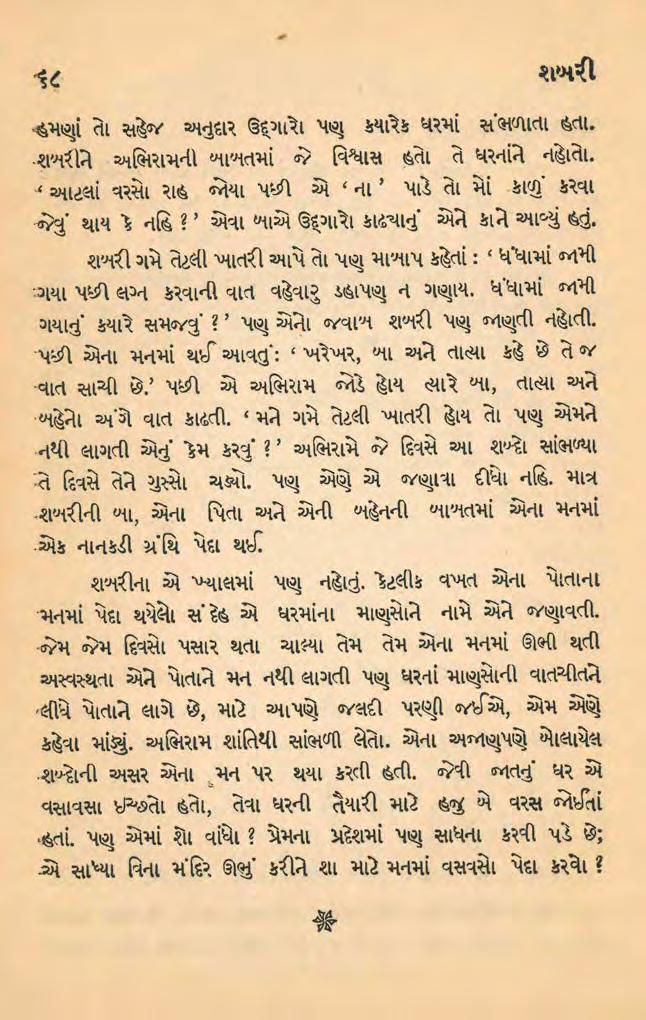 ૬૮
શબરી
હમણાં તો સહેજ અનુદાર ઉદ્ગારો પણ કયારેક ઘરમાં સંભળાતા હતા.
શબરીને અભિરામની બાબતમાં જે વિશ્વાસ હતો તે ઘરનાંને નહોતો.
‘ આટલાં વરસો રાહ જોયા પછી એ ‘ ના ’ પાડે તો મોં કાળું કરવા
જેવું થાય કે નહિ ? ’ એવા બાએ ઉદ્ગારો કાઢયાનું એને કાને આવ્યું હતું.
શબરી ગમે તેટલી ખાતરી આપે તો પણ માબાપ કહેતાં : ‘ ધંધામાં જામી
ગયા પછી લગ્ન કરવાની વાત વહેવારુ ડહાપણ ન ગણાય. ધંધામાં જામી
ગયાનું કયારે સમજવું ? ’ પણ એનો જવાબ શબરી પણ જાણતી નહોતી.
પછી એના મનમાં થઈ આવતું : ‘ ખરેખર, બા અને તાત્યા કહે છે તે જ
વાત સાચી છે.’ પછી એ અભિરામ જોડે હોય ત્યારે બા, તાત્યા અને
બહેનો અંગે વાત કાઢતી. ‘ મને ગમે તેટલી ખાતરી હોય તો પણ એમને
નથી લાગતી એનું કેમ કરવું ? ’ અભિરામે જે દિવસે આ શબ્દો સાંભળ્યા
તે દિવસે તેને ગુસ્સો ચડ્યો. પણ એણે એ જણાવા દીધો નહિ. માત્ર
શબરીની બા, એના પિતા અને એની બહેનની બાબતમાં એના મનમાં
એક નાનકડી ગ્રંથિ પેદા થઈ.
શબરીના એ ખ્યાલમાં પણ નહોતું. કેટલીક વખત એના પોતાના
મનમાં પેદા થયેલો સંદેહ એ ઘરમાંના માણસોને નામે એને જણાવતી.
જેમ જેમ દિવસો પસાર થતા ચાલ્યા તેમ તેમ એના મનમાં ઊભી થતી
અસ્વસ્થતા એને પોતાને મન નથી લાગતી પણ ઘરનાં માણસોની વાતચીતને
લીધે પોતાને લાગે છે, માટે આપણે જલદી પરણી જઈએ, એમ એણે
કહેવા માંડ્યું. અભિરામ શાંતિથી સાંભળી લેતો. એના અજાણપણે બોલાયેલ
શબ્દોની અસર એના મન પર થયા કરતી હતી. જેવી જાતનું ઘર એ
વસાવસા ઇચ્છતો હતો, તેવા ઘરની તૈયારી માટે હજુ બે વરસ જોઈતાં
હતાં. પણ એમાં શો વાંધો ? પ્રેમના પ્રદેશમાં પણ સાધના કરવી પડે છે;
એ સાધ્યા વિના મંદિર ઊભું કરીને શા માટે મનમાં વસવસો પેદા કરવો ?